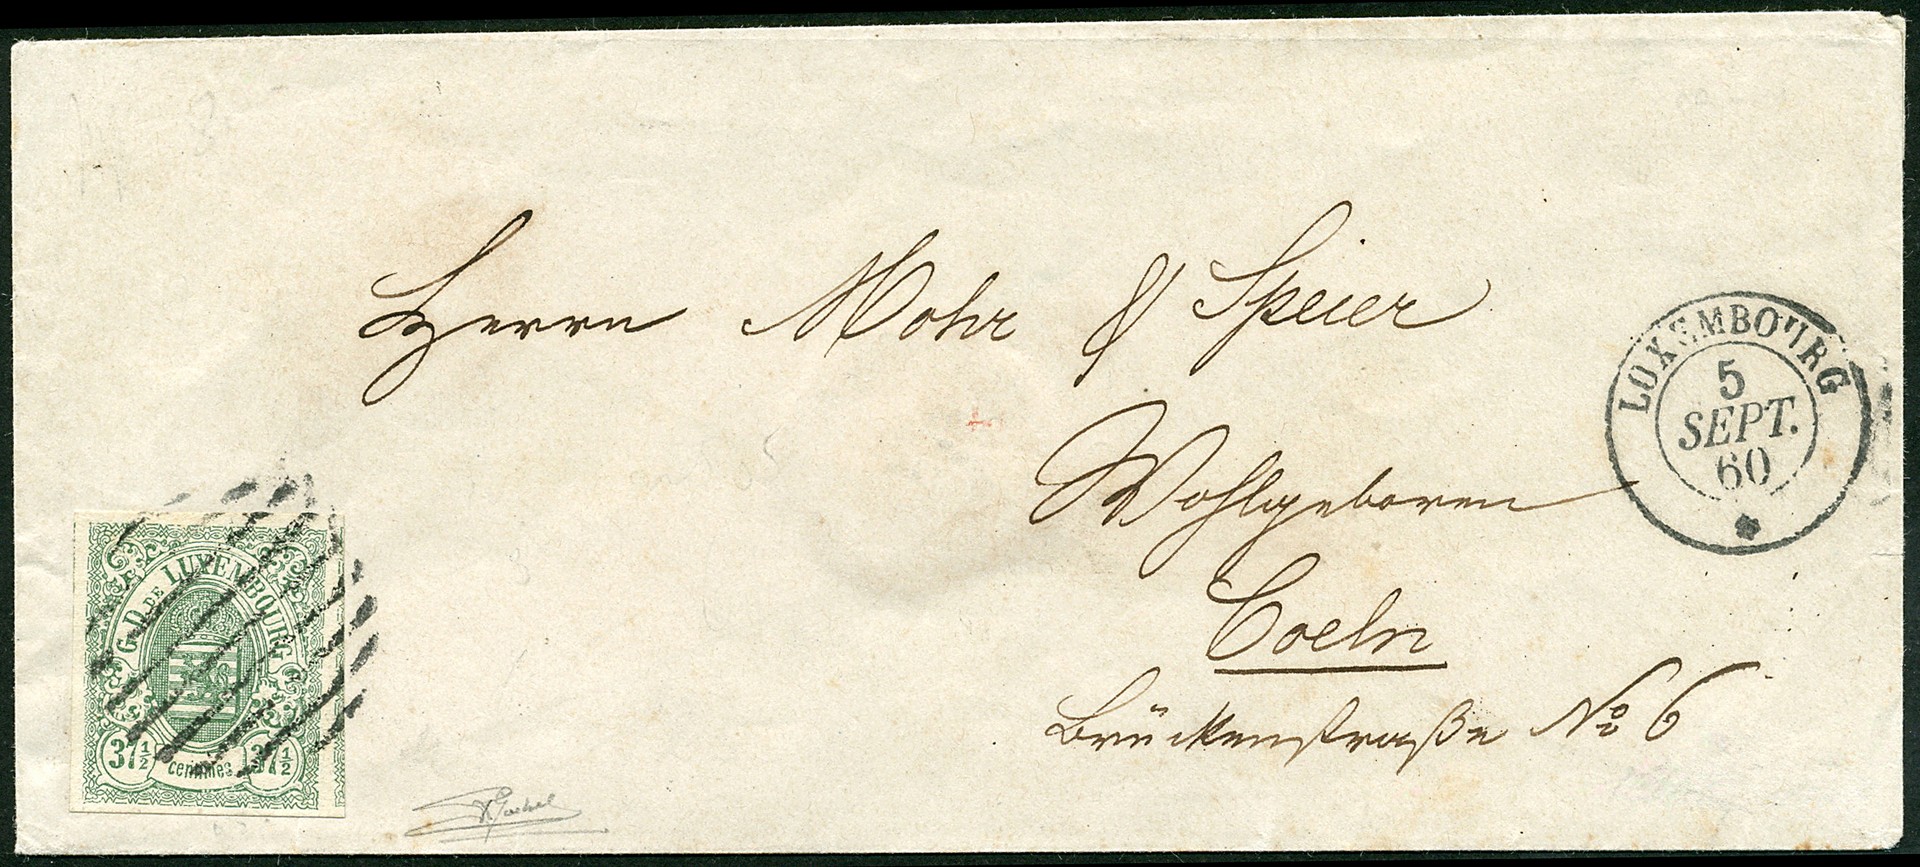 Herrn Mohr & Speier
Wohlgeboren
Coeln
Brückenstraße No 6
LUXEMBOURG
5
SEPT.
60
G.D. DE LUXEMBOURG
37½ centimes 37½